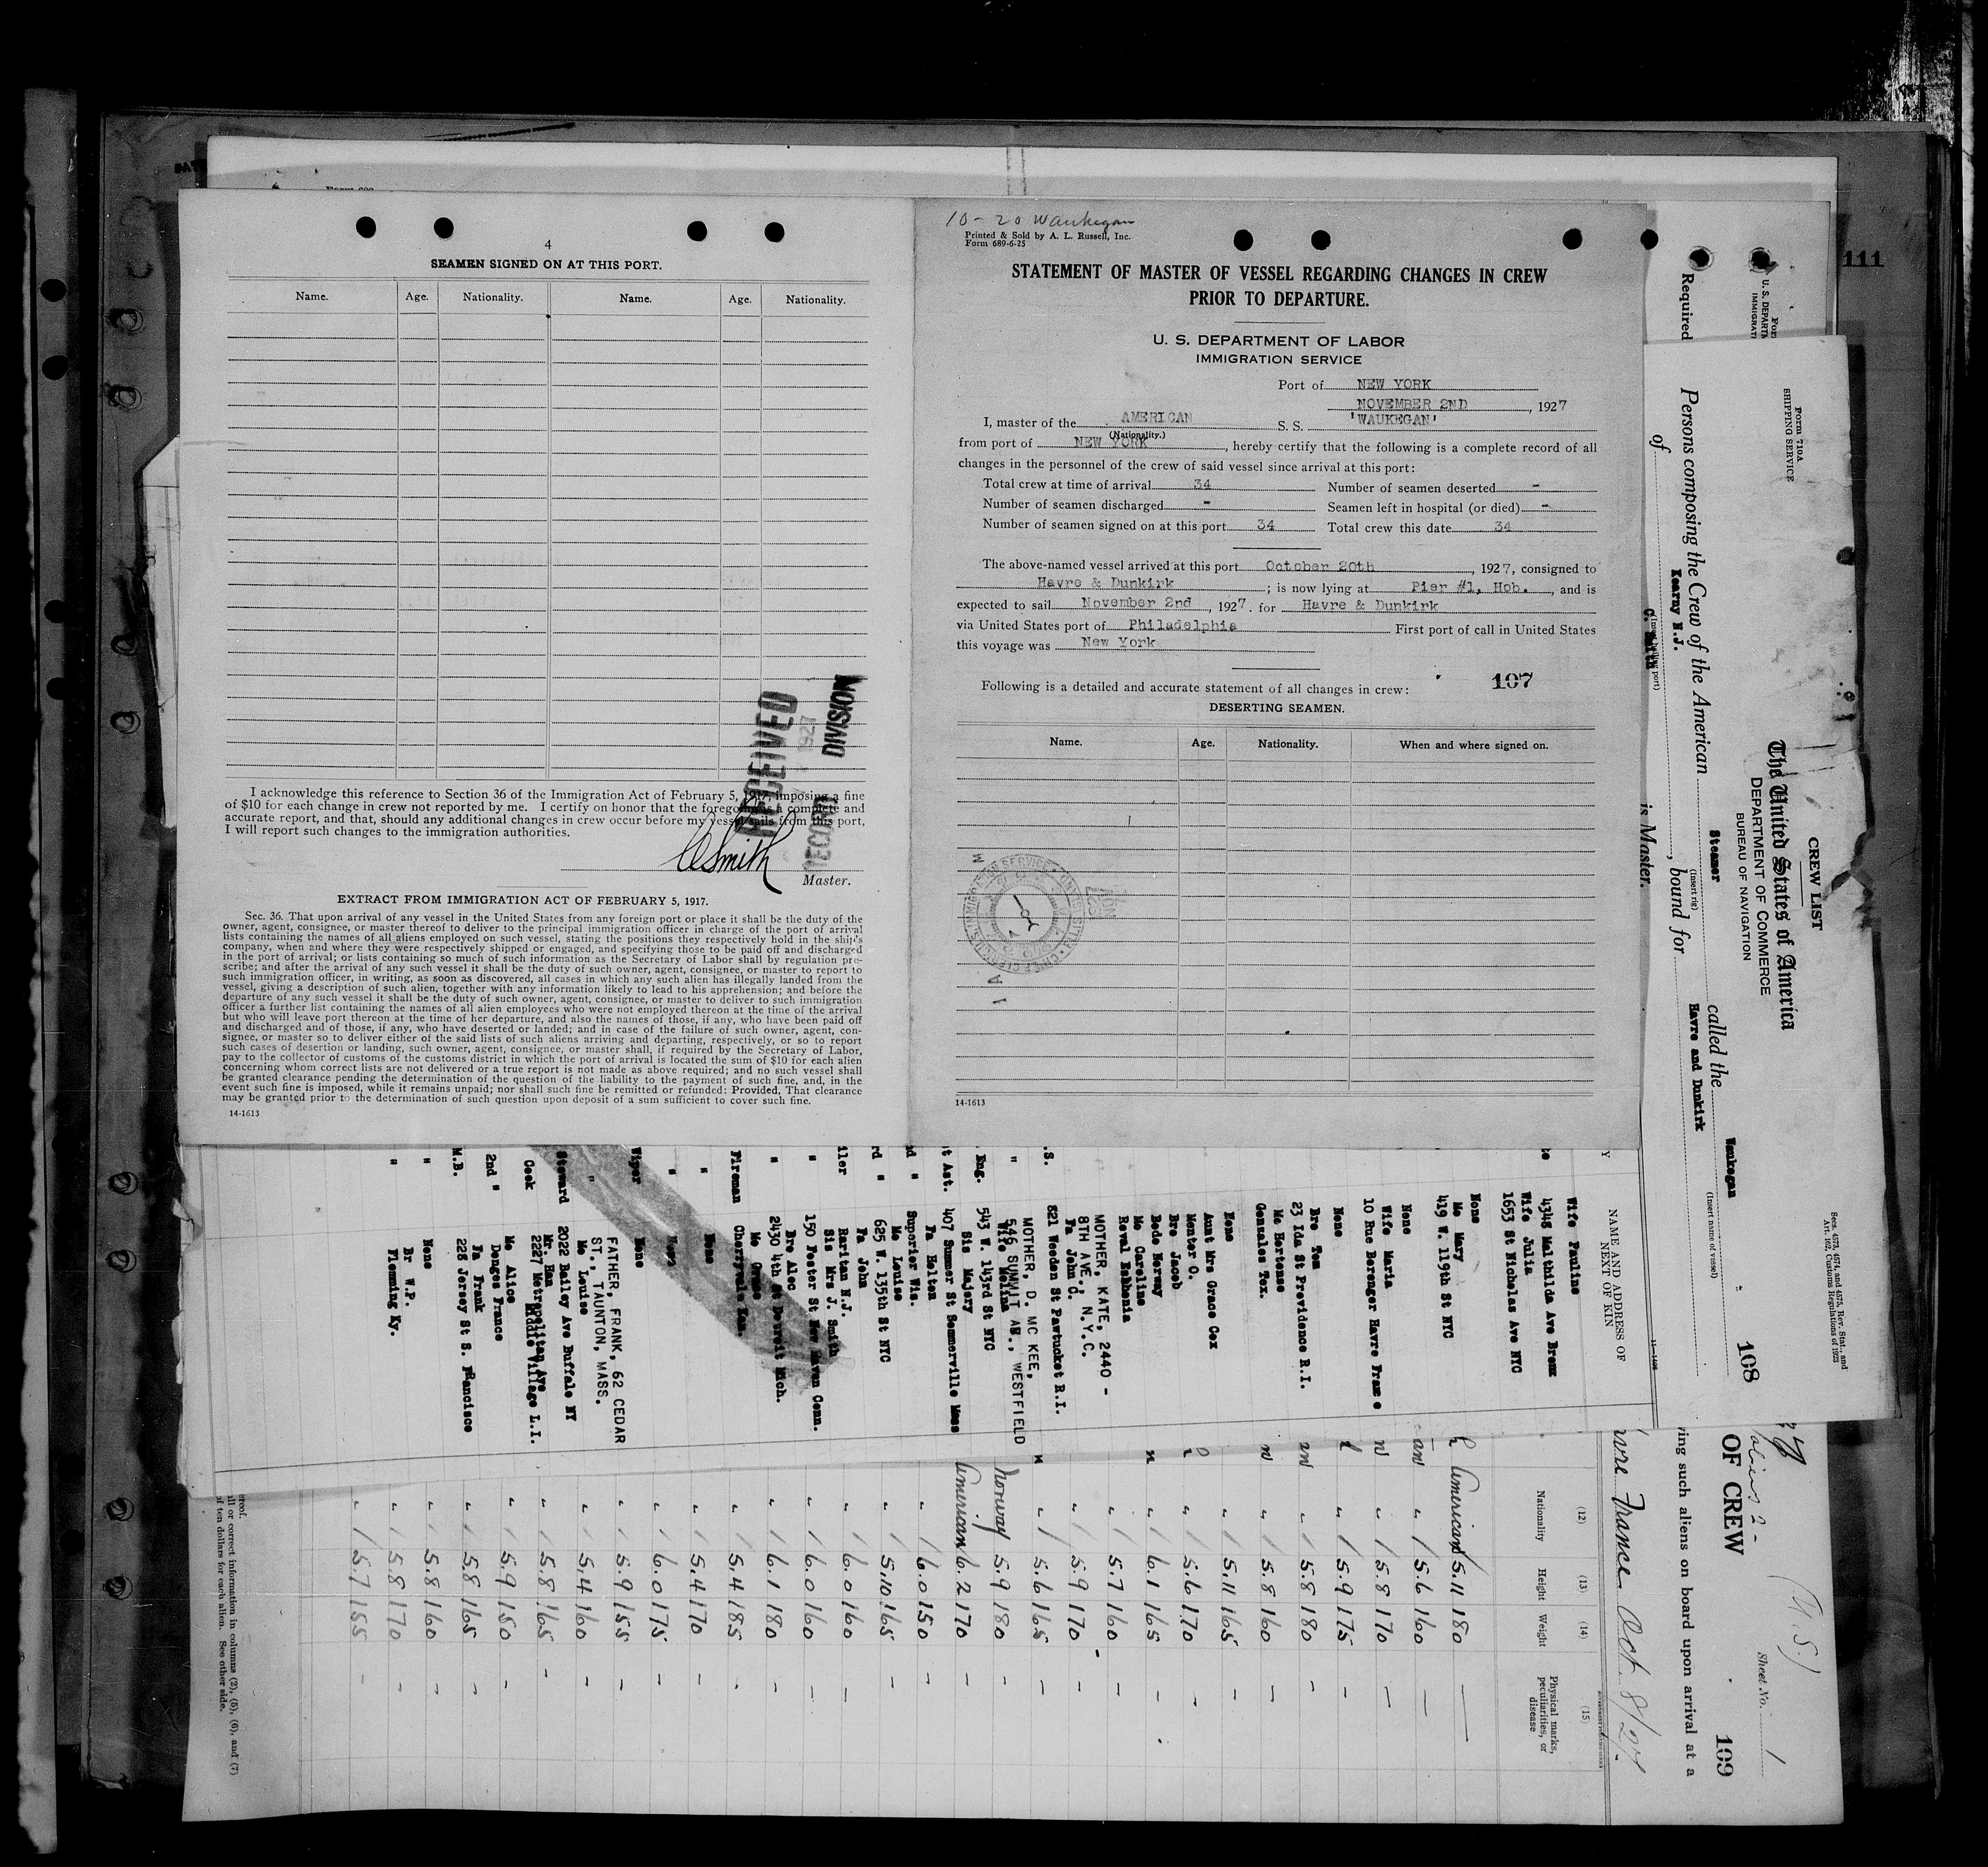 4
SEAMEN SIGNED ON AT THIS PORT.
Name. Age. Nationality. Name. Age. Nationality.
I acknowledge this reference to Section 36 of the Immigration Act of February 5, 1917, imposing a fine
of $10 for each change in crew not reported by me. I certify on honor that the foregoing is a complete and
accurate report, and that, should any additional changes in crew occur before my vessel sails from this port,
I will report such changes to the immigration authorities.
RECEIVED
1927
RECORD DIVISION
C Smith
Master.
EXTRACT FROM IMMIGRATION ACT OF FEBRUARY 5, 1917.
Sec. 36. That upon arrival of any vessel in the United States from any foreign port or place it shall be the duty of the
owner, agent, consignee, or master thereof to deliver to the principal immigration officer in charge of the port of arrival
lists containing the names of all aliens employed on such vessel, stating the positions they respectively hold in the ship's
company, when and where they were respectively shipped or engaged, and specifying those to be paid off and discharged
in the port of arrival; or lists containing so much of such information as the Secretary of Labor shall by regulation pre-
scribe; and after the arrival of any such vessel it shall be the duty of such owner, agent, consignee, or master to report to
such immigration officer, in writing, as soon as discovered, all cases in which any such alien has illegally landed from the
vessel, giving a description of such alien, together with any information likely to lead to his apprehension; and before the
departure of any such vessel it shall be the duty of such owner, agent, consignee, or master to deliver to such immigration
officer a further list containing the names of all alien employees who were not employed thereon at the time of the arrival
but who will leave port thereon at the time of her departure, and also the names of those, if any, who have been paid off
and discharged and of those, if any, who have deserted or landed; and in case of the failure of such owner, agent, con-
signee, or master so to deliver either of the said lists of such aliens arriving and departing, respectively, or so to report
such cases of desertion or landing, such owner, agent, consignee, or master shall, if required by the Secretary of Labor,
pay to the collector of customs of the customs district in which the port of arrival is located the sum of $10 for each alien
concerning whom correct lists are not delivered or a true report is not made as above required; and no such vessel shall
be granted clearance pending the determination of the question of the liability to the payment of such fine, and, in the
event such fine is imposed, while it remains unpaid; nor shall such fine be remitted or refunded: Provided, That clearance
may be granted prior to the determination of such question upon deposit of a sum sufficient to cover such fine.
14-1613
10-20 Waukegan
Printed & Sold by A. L. Russell, Inc.
Form 689-6-25
STATEMENT OF MASTER OF VESSEL REGARDING CHANGES IN CREW
PRIOR TO DEPARTURE.
U. S. DEPARTMENT OF LABOR
IMMIGRATION SERVICE
Port of NEW YORK
NOVEMBER 2ND, 1927
I, master of the AMERICAN S. S. 'WAUKEGAN'
(Nationality.)
from port of NEW YORK, hereby certify that the following is a complete record of all
changes in the personnel of the crew of said vessel since arrival at this port:
Total crew at time of arrival 34 Number of seamen deserted -
Number of seamen discharged - Seamen left in hospital (or died) -
Number of seamen signed on at this port 34 Total crew this date 34
The above-named vessel arrived at this port October 20th, 1927, consigned to
Havre & Dunkirk; is now lying at Pier #1, Hob., and is
expected to sail November 2nd, 1927. for Havre & Dunkirk
via United States port of Philadelphia First port of call in United States
this voyage was New York
107
Following is a detailed and accurate statement of all changes in crew:
DESERTING SEAMEN.
Name. Age. Nationality. When and where signed on.
14-1613
111
Form 710A
SHIPPING SERVICE
CREW LIST
The United States of America
DEPARTMENT OF COMMERCE
BUREAU OF NAVIGATION
Secs. 4573, 4574, and 4575, Rev. Stat., and
Art. 162, Customs Regulations of 1923
108
Required
Persons composing the Crew of the American Steamer called the Waukegan
(Insert rig) (Insert name of vessel)
of Kearny N.J., bound for Havre and Dunkirk
C. Smith is Master.
NAME AND ADDRESS OF
NEXT OF KIN
Wife Pauline
4348 Mathilda Ave Bronx
Wife Julia
1653 St Nicholas Ave NYC
None
Mo Mary
419 W. 119th St NYC
None
Wife Maria
10 Rue Berenger Havre France
None
Bro Tom
23 Ida St Providence R.I.
Mo Hortense
Gonzales Tex.
None
Aunt Mrs Grace Cox
Bro Jacob
Bodo Norway
Mo Caroline
Reval Esthonia
MOTHER, KATE, 2440 -
8TH AVE., N.Y.C.
Fa John C.
821 Weeden St Pawtucket R.I.
MOTHER, D. MC KEE,
546 SUMMIT AV., WESTFIELD
543 W. 143rd St NYC
Sis Majory
407 Summer St Sommerville Mass
Superior Wis.
Mo Louise
625 W. 135th St NYC
Fa John
Raritan N.J.
Sis Mrs J. Smith
150 Foster St New Haven Conn.
Bro Alec
2430 4th St Detroit Mich.
Fireman Cherryvale Kan.
None
None
Wiper None
FATHER, FRANK, 62 CEDAR
ST., TAUNTON, MASS.
Mo Louise
Steward 2022 Bailey Ave Buffalo NY
Cook 2227 Metropolitan Ave
Middle Village L.I.
2nd " Mo Alice
Fa Frank
M.B. 228 Jersey St S. Francisco
" None
Br W.P.
" Flemming Ky.
OF CREW
Sheet No. 1
109
ing such aliens on board upon arrival at a
France Oct 8/27
(12) (13) (14) (15)
Nationality Height Weight Physical marks, peculiarities, or disease
American 5.11 180 —
" 5.6 160 —
" 5.8 170 —
" 5.9 175 —
" 5.8 180 —
" 5.8 160 —
" 5.11 165 —
" 5.6 170 —
" 6.1 165 —
" 5.7 160 —
" 5.9 170 -
" 5.6 165 —
Norway 5.9 180 —
American 6.2 170 —
" 6.0 150 —
" 5.10 165 —
" 6.0 160 —
" 6.0 160 —
" 6.1 180 —
" 5.4 185 -
" 5.4 170 —
" 6.0 175 —
" 5.9 155 —
" 5.4 160 —
" 5.8 165 —
" 5.9 150 —
" 5.8 165 —
" 5.8 160 —
" 5.8 170 —
" 5.7 155 —
ll or correct information in columns (2), (5), (6), and (7)
of ten dollars for each alien. See other side.